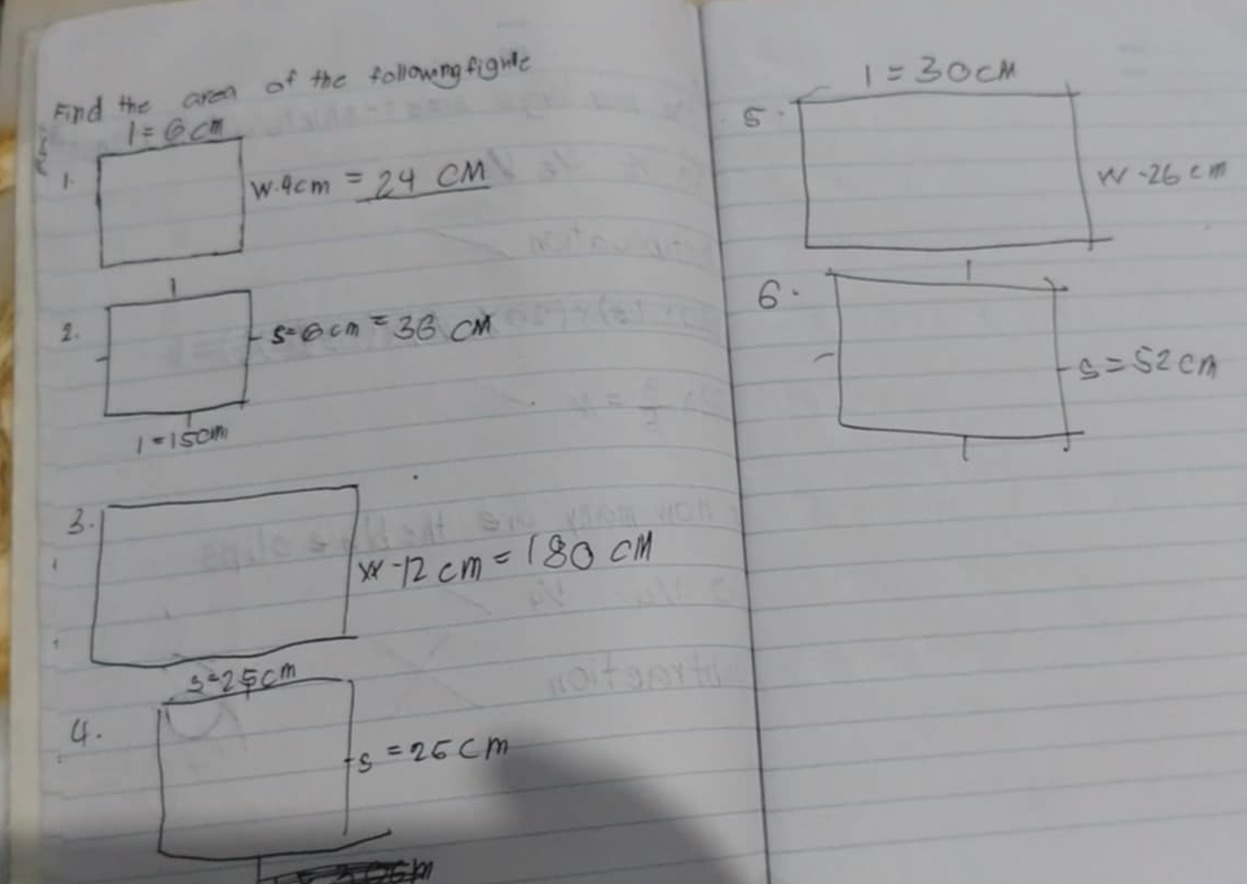 Find the area of the following figure
l = 6 cm
1. W.4cm = 24 CM
2. s=6 cm = 36 CM
l = 15cm
3. W-12 cm = 180 CM
s=25cm
4. s = 25 cm
l = 30 cM
5. W-26 cm
6. s = 52 cm